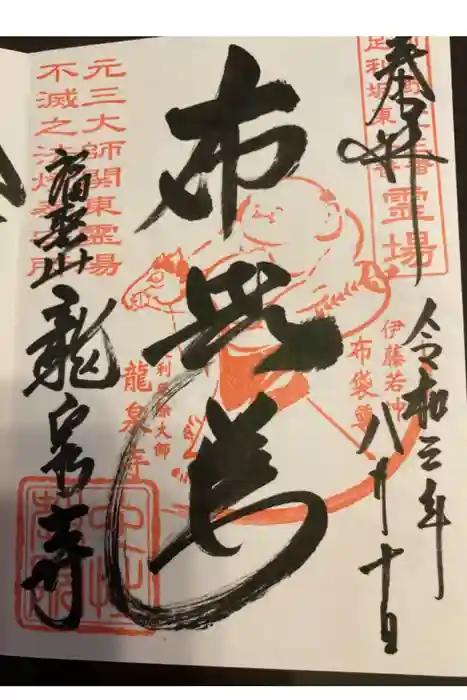 奉拝
足利坂東
霊場
令和三年
八月十日
伊藤若冲
布袋尊
布袋尊
龍泉寺
元三大師関東霊場
不滅之法燈奉安所
福聚山龍泉寺